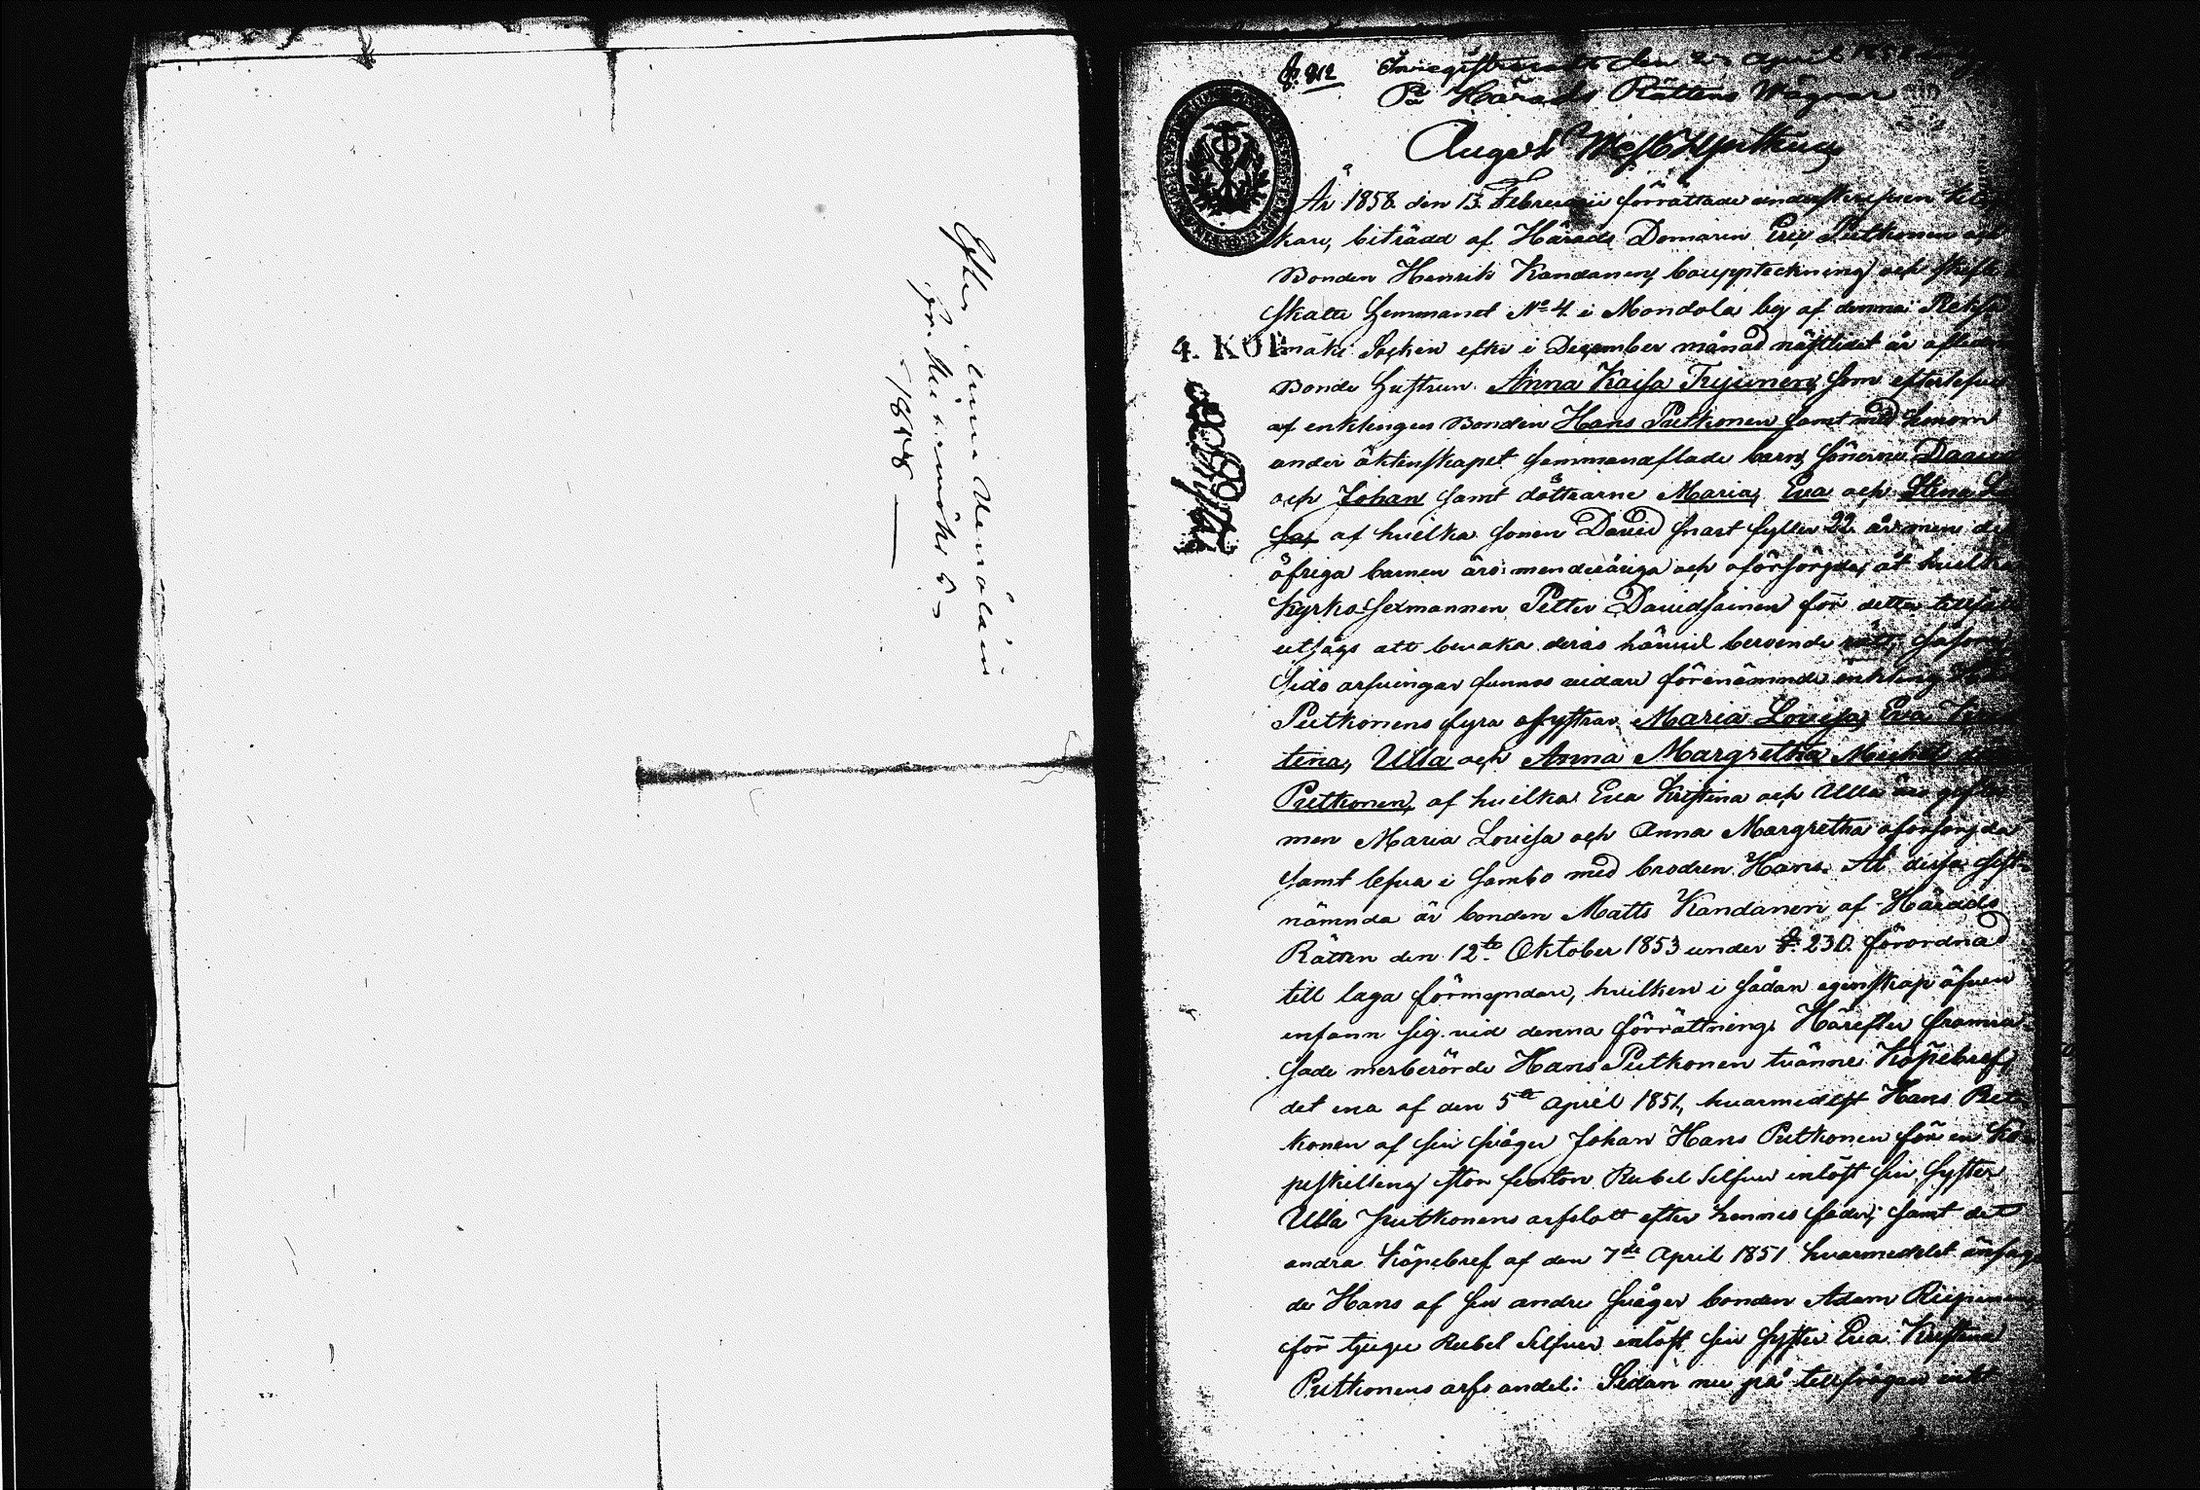 Efter
1858
§. 212 Inregistreradt den April 1858
På Härads Rättens Wägnar
August
År 1858 den 13 Februarii förrättade underskrifven
kare, biträdd af Härads Domaren Eric Putkonen och
Bonden Henrik Kandanen, bouppteckning och skifte
Skatte Hemmanet No 4 i Mondola by af denna
4. KOP.
mäki Socken efter i December månad nästledet år aflidna
Bonde Hustrun Anna Kaisa Trijonen, som efterlefves
af enklingen Bonden Hans Putkonen samt med honom
under äktenskapet sammanaflade barn, sönerne
och Johan samt döttrarne Maria, Eva och Stina
sa, af hvilka sonen David snart fyller 22 år men de
öfriga barnen äro minderåriga och oförsörgda, åt hvilka
Kyrko Sexmannen Petter Davidsainen för detta tillfälle
utsågs att bevaka deras härvid beroende rätt, såsom
Sido arfvingar funnos vidare förenämnde enkling
Putkonens fyra systrar Maria Lovisa, Eva Kris
tina, Ulla och Anna Margretha
Putkonen, af hvilka Eva Kristina och Ulla äro gifta
men Maria Lovisa och Anna Margretha oförsörgda
samt lefva i sambo med brodren Hans. Åt dessa sist
nämnda är bonden Matts Kandanen af Härads
Rätten den 12te Oktober 1853 under §. 230 förordnad
till laga förmyndare, hvilken i sådan egenskap äfven
infann sig vid denna förrättning. Härefter framvi
sade merberörde Hans Putkonen tvänne Köpebref,
det ena af den 5te April 1851, hvarmedelst Hans Put
konen af sin svåger Johan Hans Putkonen för en Kö
peskilling stor femton Rubel Silfver inlöst sin syster
Ulla Putkonens arfslott efter hennes fader; samt det
andra Köpebref af den 7de April 1851 hvarmedelst
de Hans af sin andre svåger bonden Adam
för tjugu Rubel Silfver inlöst sin syster Eva Kristina
Putkonens arfs andel: Sedan nu på tillfrågan